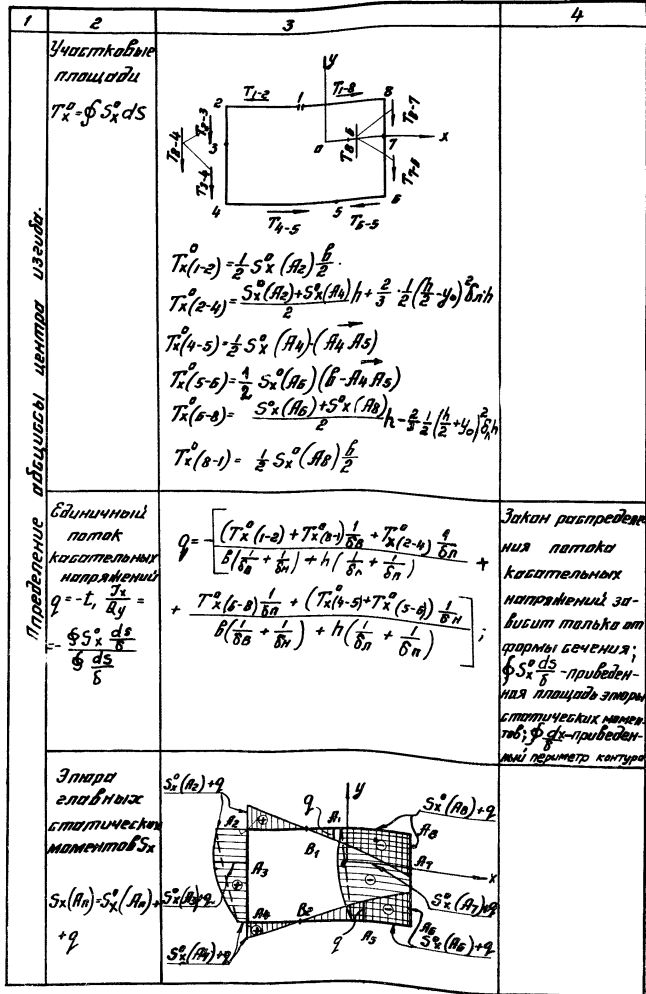 1 2 3 4
Определение абсциссы центра изгиба.
Участковые
площади
Tx° = ∮ Sx° ds
y
T1-2 1 T1-8 8
2
T2-3
T2-4
3
T3-4
4
T4-5
5
T6-5
6
0
T8-6
T8-7
7
x
Tx°(1-2) = 1/2 Sx°(A2) b/2.
Tx°(2-4) = (Sx°(A2) + Sx°(A4))/2 h + 2/3 · 1/2 (h/2 - y0)² δл h
Tx°(4-5) = 1/2 Sx° (A4)·(A4 A5)
Tx°(5-6) = 1/2 Sx°(A6) (b - A4 A5)
Tx°(6-8) = (Sx°(A6) + S°x(A8))/2 h - 2/3 1/2 (h/2 + y0)² δп h
Tx°(8-1) = 1/2 Sx°(A8) b/2
Единичный
поток
касательных
напряжений
q = -t, Jx/Qy =
= - ∮ Sx° ds/δ / ∮ ds/δ
q = - [ ((Tx°(1-2) + Tx°(8-1)) 1/δв + Tx°(2-4) 1/δл) / (b(1/δв + 1/δн) + h(1/δл + 1/δп)) +
+ (Tx°(6-8) 1/δп + (Tx°(4-5) + Tx°(5-6)) 1/δн) / (b(1/δв + 1/δн) + h(1/δл + 1/δп)) ];
Закон распределе
ния потока
касательных
напряжений за-
висит только от
формы сечения;
∮ Sx° ds/δ - приведен-
ная площадь эпюры
статических момен-
тов; ∮ dx/δ - приведен-
ный периметр контура
Эпюра
главных
статических
моментов Sx
Sx(An) = Sx°(An) +
+ q
Sx°(A2)+q
A2
q
A1
y
Sx°(A8)+q
A8
B1
A7
A3
x
Sx°(A3)+q
Sx°(A7)+q
A4
B2
A5
A6
Sx°(A4)+q
q
Sx°(A6)+q